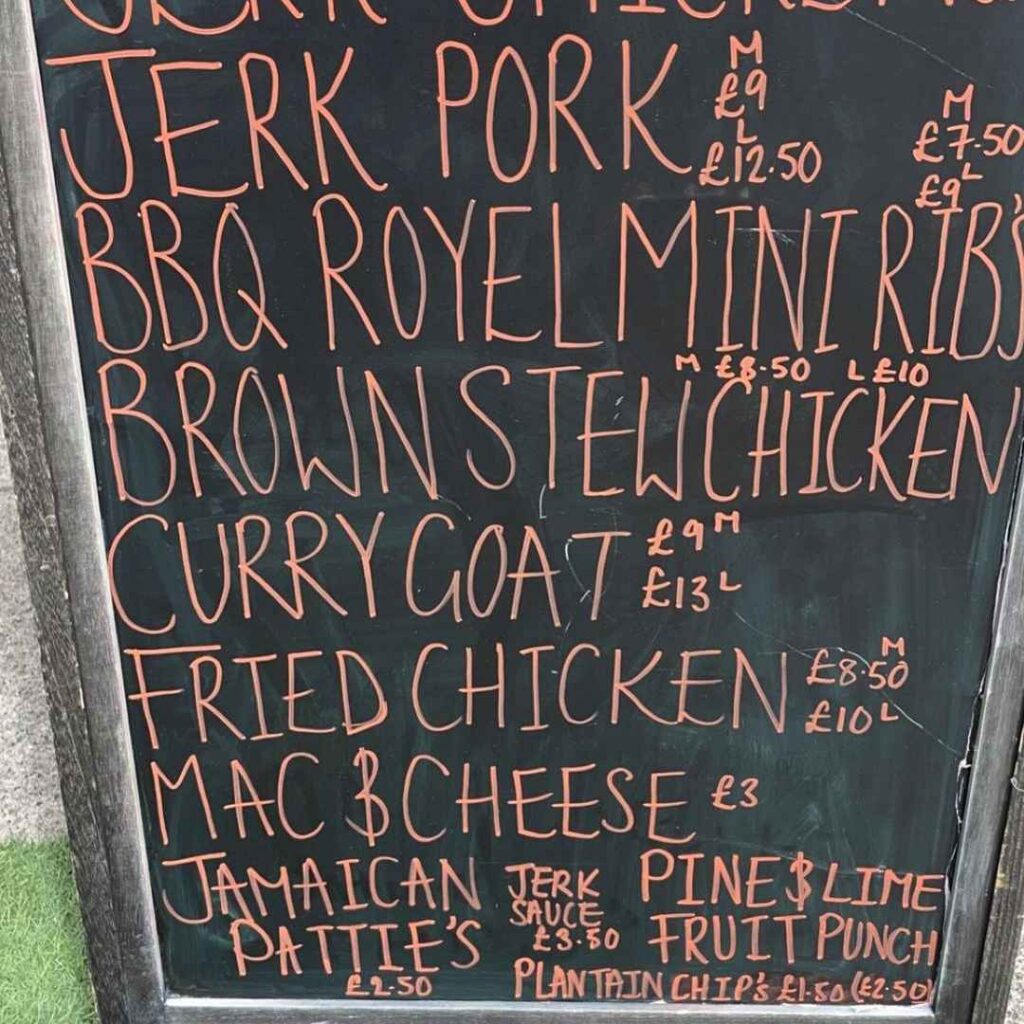 JERK CHICKEN
JERK PORK M £9 L £12.50
M £7.50 £9 L
BBQ ROYEL MINI RIB'S
M £8.50 L £10
BROWN STEW CHICKEN
CURRY GOAT £9 M £13 L
FRIED CHICKEN £8.50 M £10 L
MAC & CHEESE £3
JAMAICAN PATTIE'S £2.50
JERK SAUCE £3.50
PINE & LIME
FRUIT PUNCH (£2.50)
PLANTAIN CHIP'S £1.50